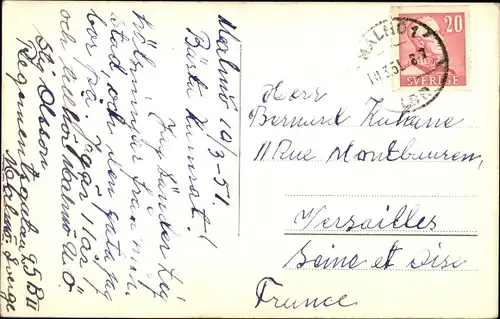 Malmö 10/3-51.
Bästa Kamrat!
Jag sänder Dig
hälsningar från min
stad, och den gata jag
bor på. Jag är 11 år
och tillhör Malmö U Ö
Stig Olsson
Regementsgatan 25 B II
Malmö, Sverge
MALMÖ 1
10.3.51
20
SVERIGE
Herr
Bernard Kahane
11 Rue Montbauron,
Versailles
Seine et Oise
France